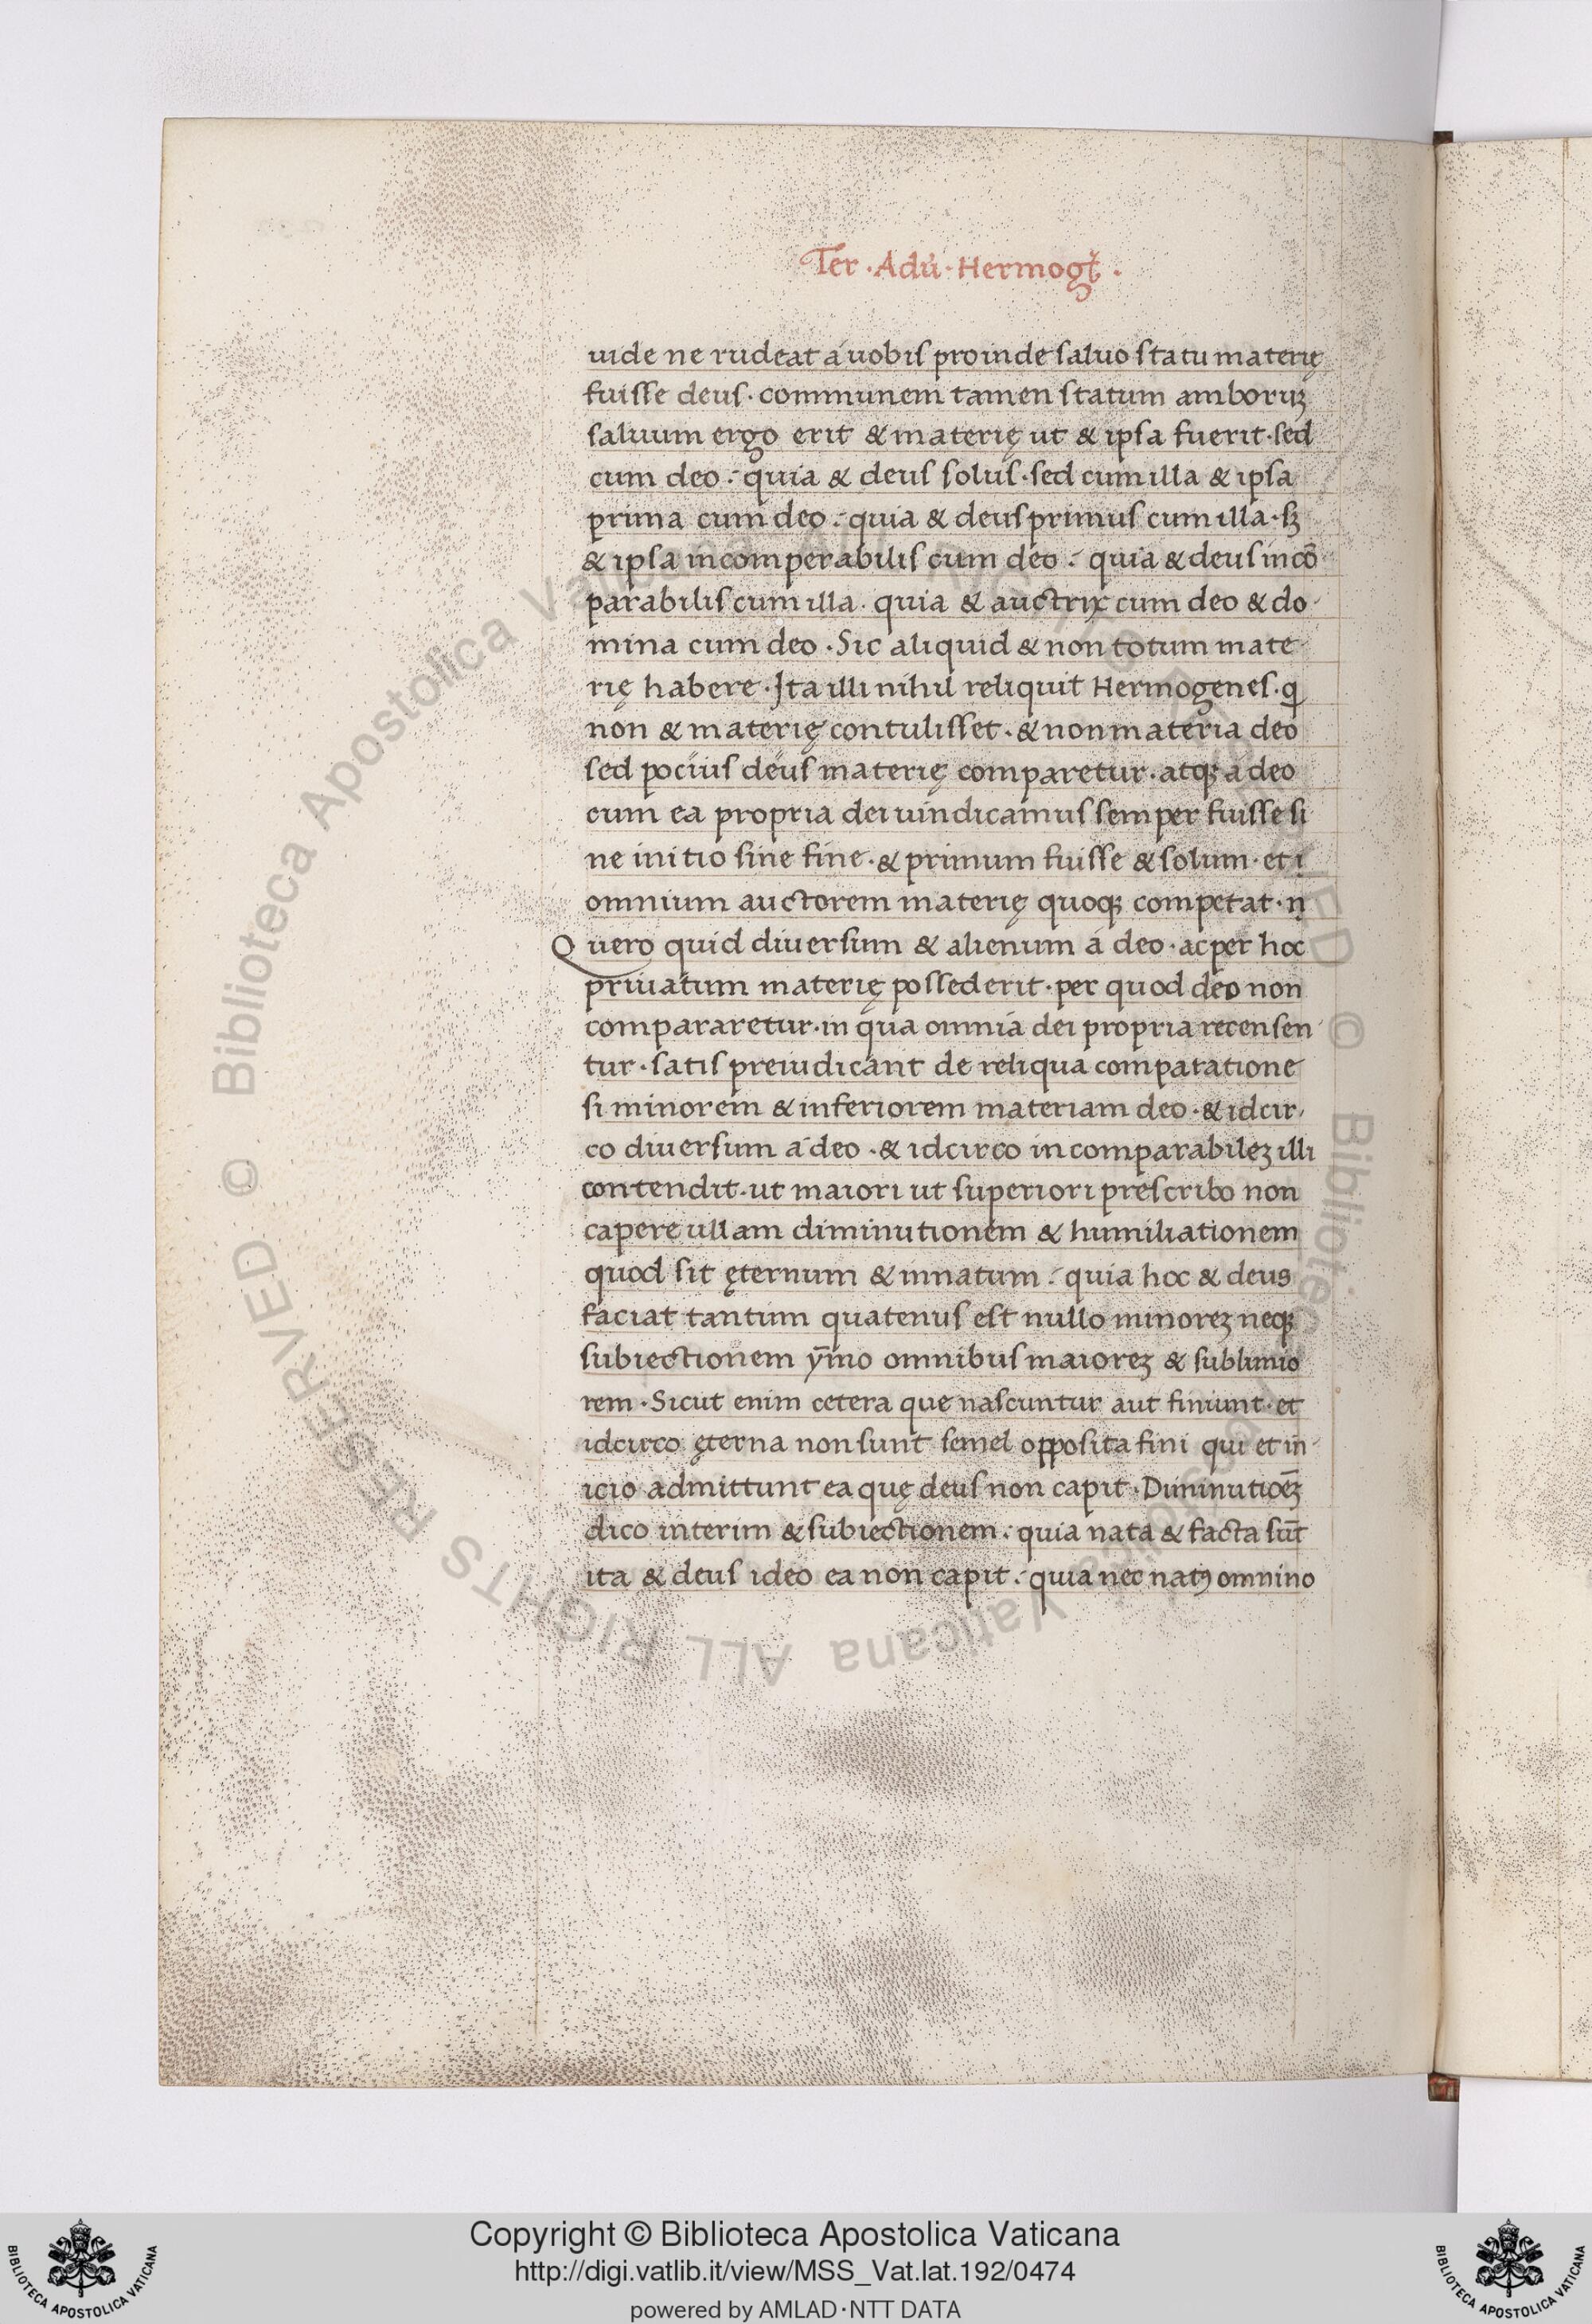 Ter · Adú · Hermogẽ ·
uide ne rudeat a uobis proinde saluo statu materię
fuisse deus · communem tamen statum amboruꝫ
saluum ergo erit & materię ut & ipsa fuerit · sed
cum deo : quia & deus solus · sed cum illa & ipsa
prima cum deo : quia & deus primus cum illa · sꝫ
& ipsa incomperabilis cum deo : quia & deus incō
parabilis cum illa · quia & auctrix cum deo & do
mina cum deo · Sic aliquid & non totum mate
rię habere · Ita illi nihil reliquit Hermogenes · ꝗ
non & materię contulisset · & non materia deo
sed pocius deus materię comparetur · atqꝫ a deo
cum ea propria dei uindicamus semper fuisse si
ne initio sine fine · & primum fuisse & solum · et i
omnium auctorem materię quoqꝫ competat · n
Q uero quid diuersum & alienum a deo · ac per hoc
priuatum materię possederit · per quod deo non
compararetur · in qua omnia dei propria recensen
tur · satis preiudicant de reliqua comparatione
si minorem & inferiorem materiam deo · & idcir
co diuersum a deo · & idcirco incomparabileꝫ illi
contendit · ut maiori ut superiori prescribo non
capere ullam diminutionem & humiliationem
quod sit ęternum & innatum : quia hoc & deus
faciat tantum quatenus est nullo minoreꝫ neqꝫ
subiectionem ȳmo omnibus maioreꝫ & sublimio
rem · Sicut enim cetera que nascuntur aut finiunt · et
idcirco ęterna non sunt semel opposita fini qui et in
icio admittunt ea quę deus non capit · Diminutioēꝫ
dico interim & subiectionem : quia nata & facta sūt
ita & deus ideo ea non capit : quia nec natꝰ omnino
© Biblioteca Apostolica Vaticana ALL RIGHTS RESERVED © Biblioteca Apostolica Vaticana ALL RIGHTS RESERVED
Copyright © Biblioteca Apostolica Vaticana
http://digi.vatlib.it/view/MSS_Vat.lat.192/0474
powered by AMLAD·NTT DATA
BIBLIOTECA APOSTOLICA VATICANA
BIBLIOTECA APOSTOLICA VATICANA